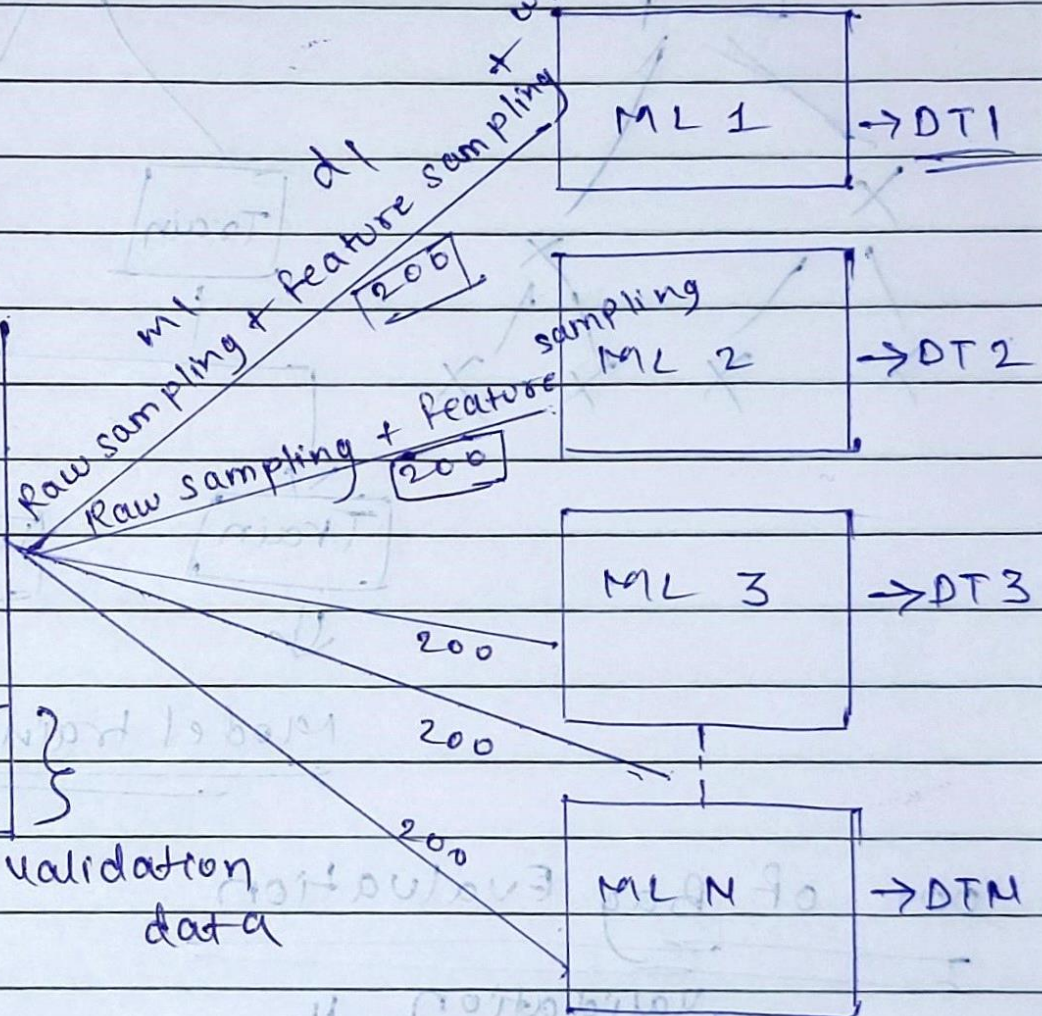 ML 1
→DT1
d1
m1.
Raw sampling + feature sampling
200
ML 2
→DT2
Raw sampling + feature sampling
200
ML 3
→DT3
200
200
200
ML N
→DTN
validation
data